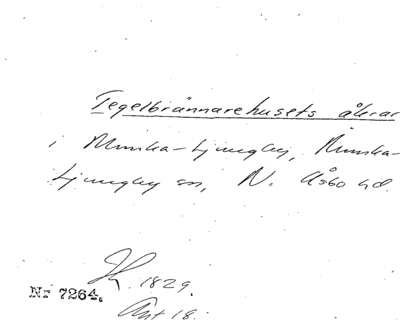 Tegelbrännarehusets åkrar
i Munka-Ljungby, Munka-
Ljungby sn, N. Åsbo hd.
1829.
Nr 7264.
Ant 18.